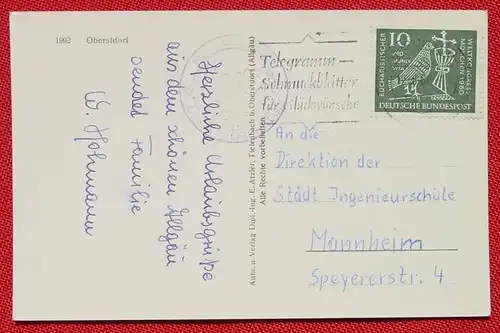 1992 Oberstdorf
Herzliche Urlaubsgrüße
aus dem schönen Allgäu
sendet Familie
W. Hohmann
Aufn. u. Verlag Dipl.-Ing. E. Atzler, Tiefenbach b. Oberstdorf (Allgäu)
Alle Rechte vorbehalten
Telegramm-
Schmuckblätter
für Glückwünsche
10
EUCHARISTISCHER
WELTKONGRESS
MÜNCHEN 1960
DEUTSCHE BUNDESPOST
An die
Direktion der
Städt Ingenieurschule
Mannheim
Speyererstr. 4